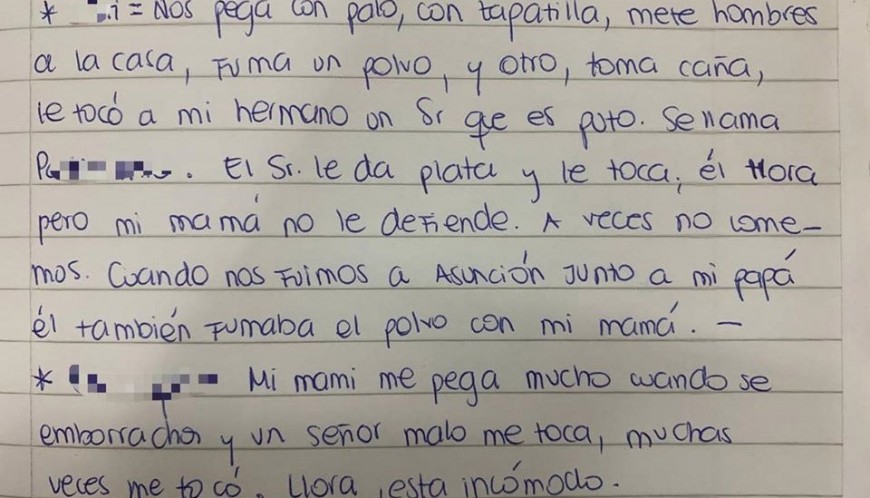 * = Nos pega con palo, con tapatilla, mete hombres
a la casa, Fuma un polvo, y otro, toma caña,
le tocó a mi hermano un Sr que es puto. Se llama
El Sr. le da plata y le toca, él llora
pero mi mamá no le defiende. A veces no come-
mos. Cuando nos Fuimos a Asunción Junto a mi papá
él también Fumaba el polvo con mi mamá. -
* Mi mami me pega mucho cuando se
emborracha y un señor malo me toca, muchas
veces me tocó. Llora, esta incómodo.